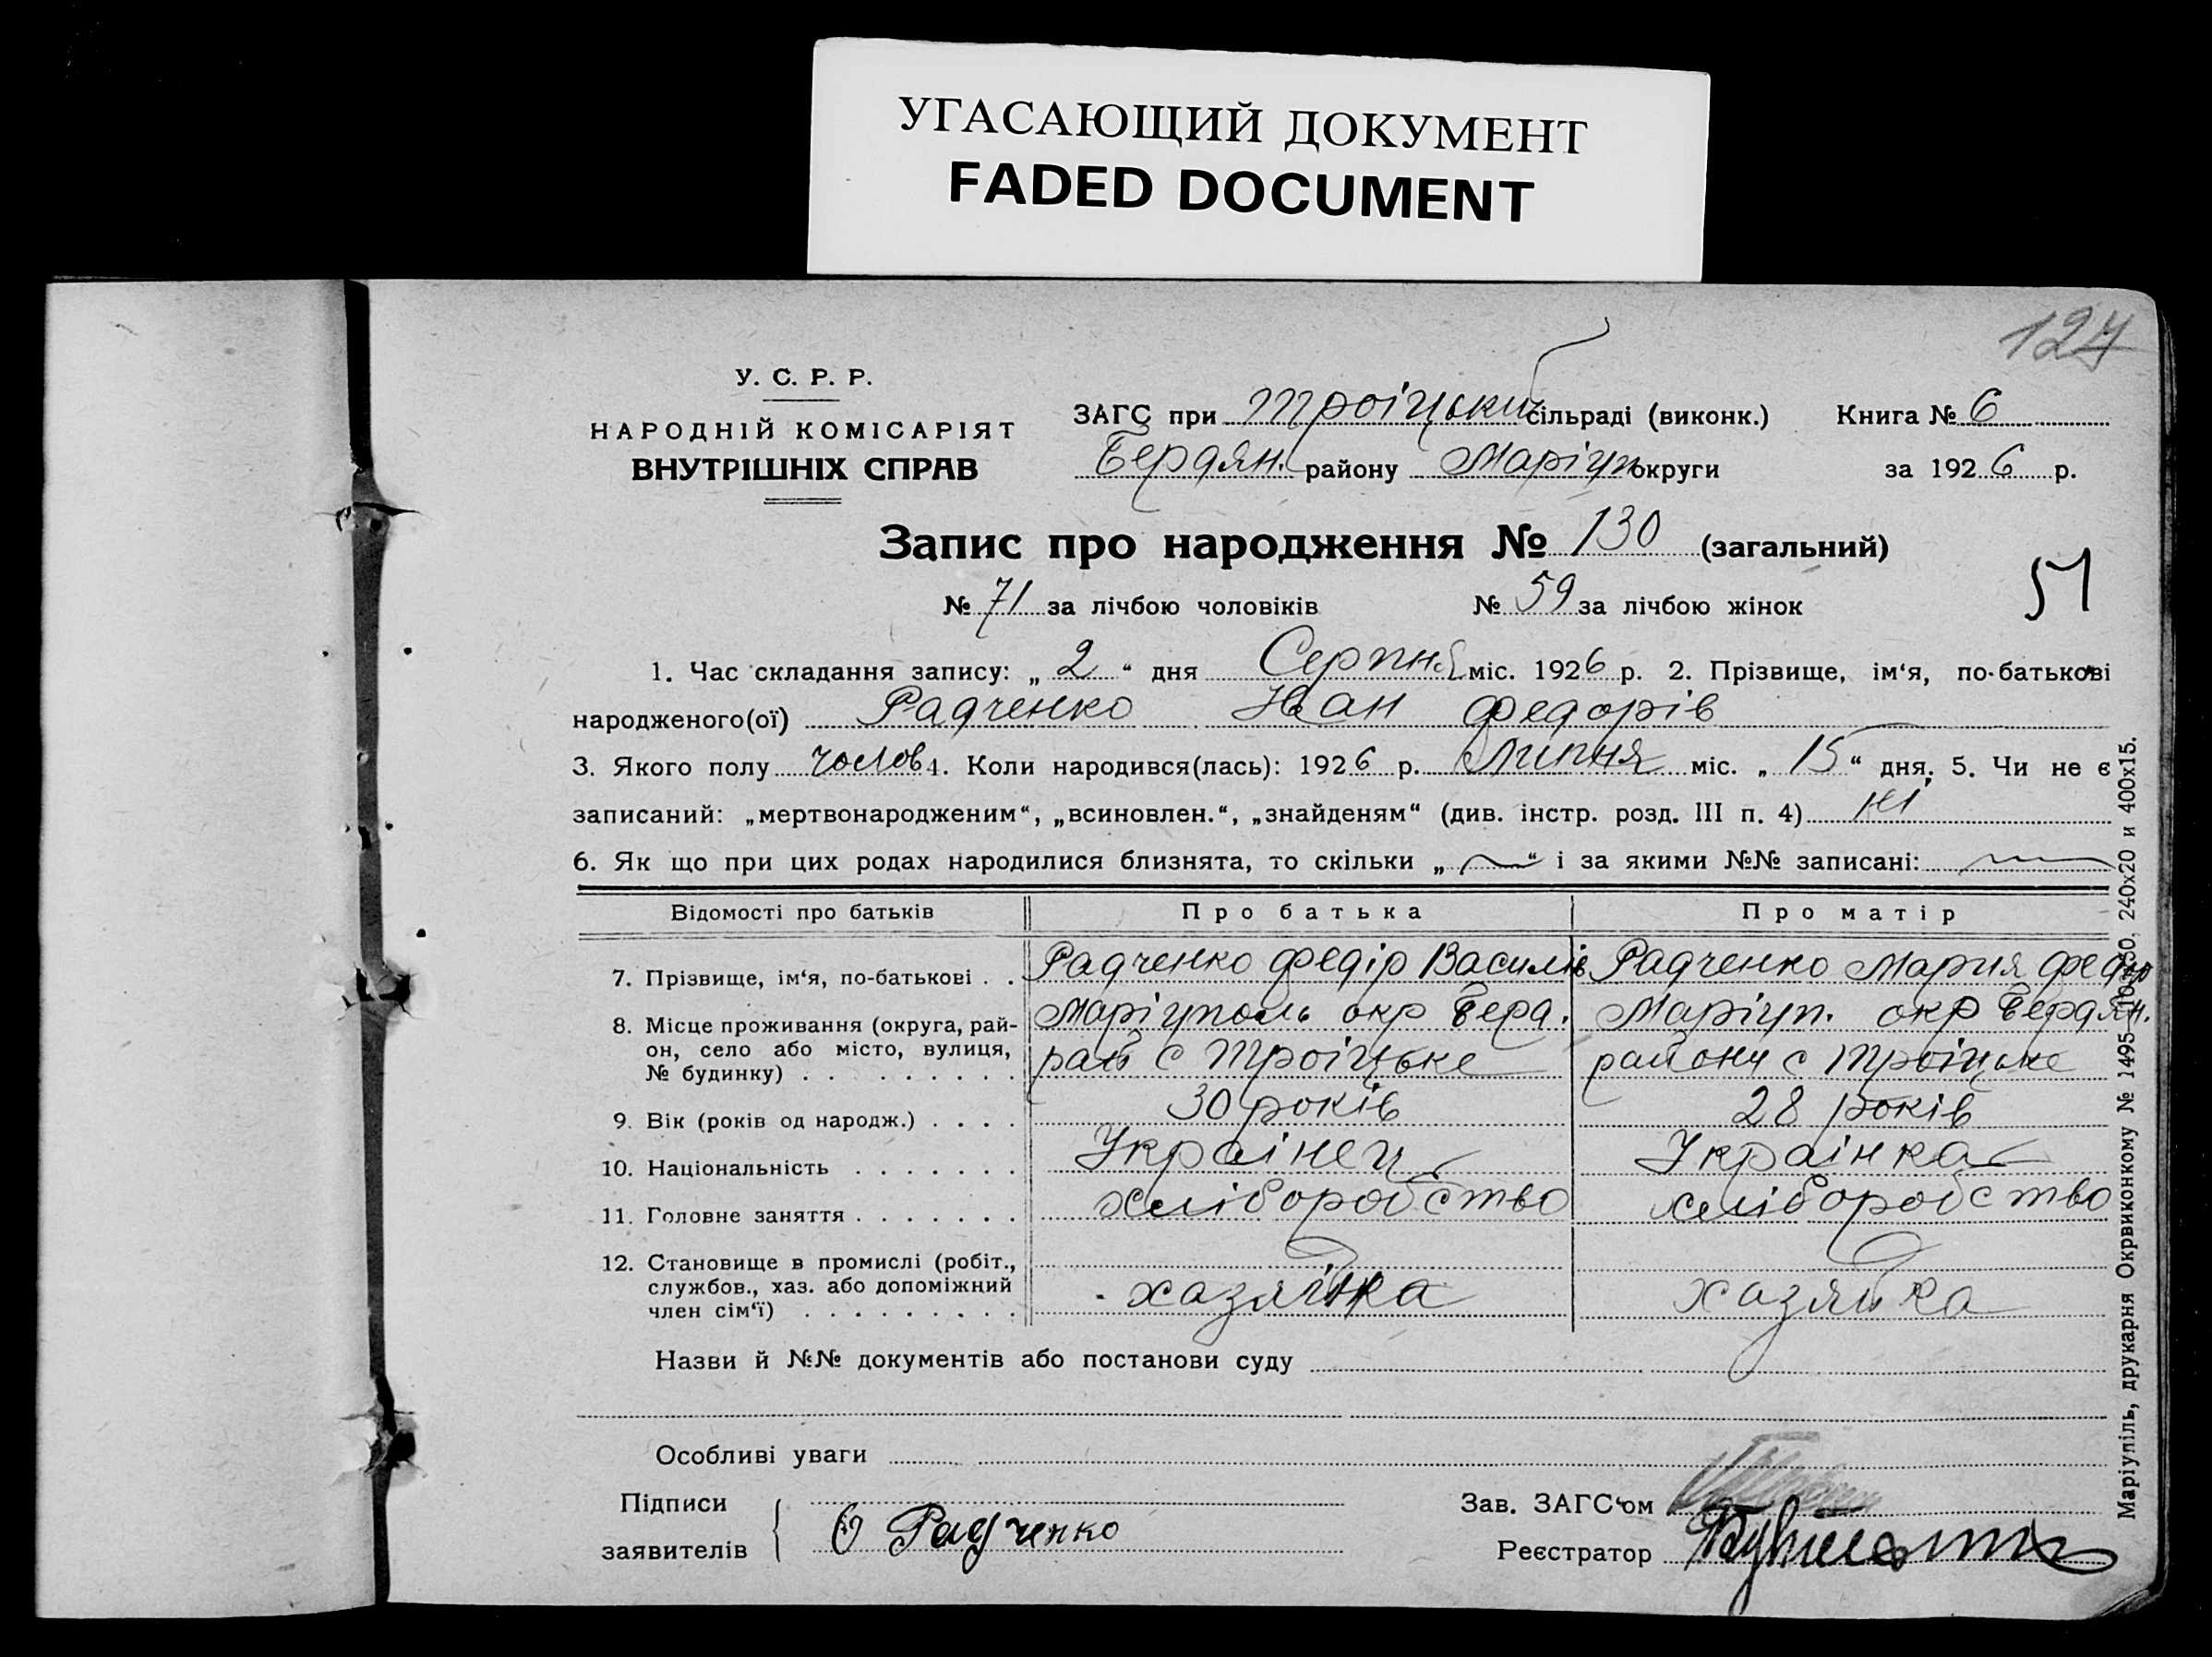 УГАСАЮЩИЙ ДОКУМЕНТ
FADED DOCUMENT
127
У. С. Р. Р.
НАРОДНІЙ КОМІСАРІЯТ
ВНУТРІШНІХ СПРАВ
ЗАГС при Троіцький сільраді (виконк.) Книга № 6
Бердян. району Маріуп округи за 1926 р.
Запис про народження № 130 (загальний)
51
№ 71 за лічбою чоловіків № 59 за лічбою жінок
1. Час складання запису: „ 2 “ дня Серпня міс. 1926 р. 2. Прізвище, ім‘я, по-батькові
народженого(ої) Радченко Іван Федорів
3. Якого полу чолов 4. Коли народився(лась): 1926 р. Липня міс. „ 15 “ дня. 5. Чи не є
записаний: „мертвонародженим“, „всиновлен.“, „знайденям“ (див. інстр. розд. III п. 4) ні
6. Як що при цих родах народилися близнята, то скільки „ — “ і за якими №№ записані: —
Відомості про батьків Про батька Про матір
7. Прізвище, ім‘я, по-батькові . . Радченко Федір Василів Радченко Мария Федор
8. Місце проживання (округа, рай- Маріуполь окр Берд. Маріуп. окр Бердян.
он, село або місто, вулиця, рай с Троіцьке району с Троіцьке
№ будинку) . . . . . . . . .
9. Вік (років од народж.) . . . . 30 років 28 років
10. Національність . . . . . . . Украінец Украінка
11. Головне заняття . . . . . . . хліборобство хліборобство
12. Становище в промислі (робіт.,
службов., хаз. або допоміжний хазяйка хазяйка
член сім‘ї) . . . . . . . . .
Назви й №№ документів або постанови суду
Особливі уваги
Підписи Зав. ЗАГС‘ом
заявителів Радченко Реєстратор
Маріупіль, друкарня Окрвиконкому № 1495—10х50. 240х20 и 400х15.